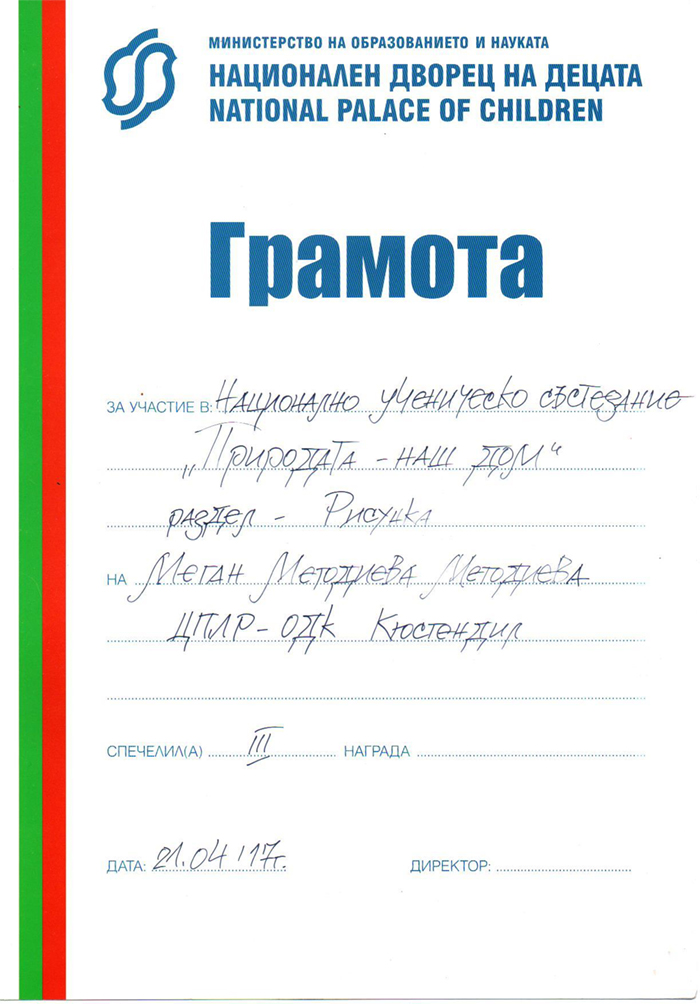 МИНИСТЕРСТВО НА ОБРАЗОВАНИЕТО И НАУКАТА
НАЦИОНАЛЕН ДВОРЕЦ НА ДЕЦАТА
NATIONAL PALACE OF CHILDREN
Грамота
ЗА УЧАСТИЕ В: Национално ученическо състезание
„Природата - наш дом“
раздел - Рисунка
НА Меган Методиева Методиева
ЦПЛР - ОДК Кюстендил
СПЕЧЕЛИЛ(А) III НАГРАДА
ДАТА: 21.04 '17г. ДИРЕКТОР: